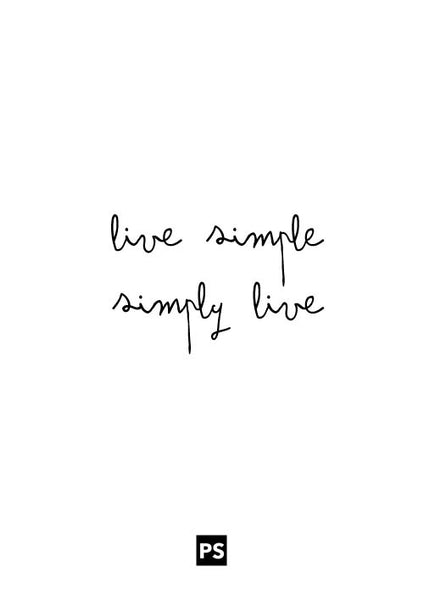 live simple
simply live
PS